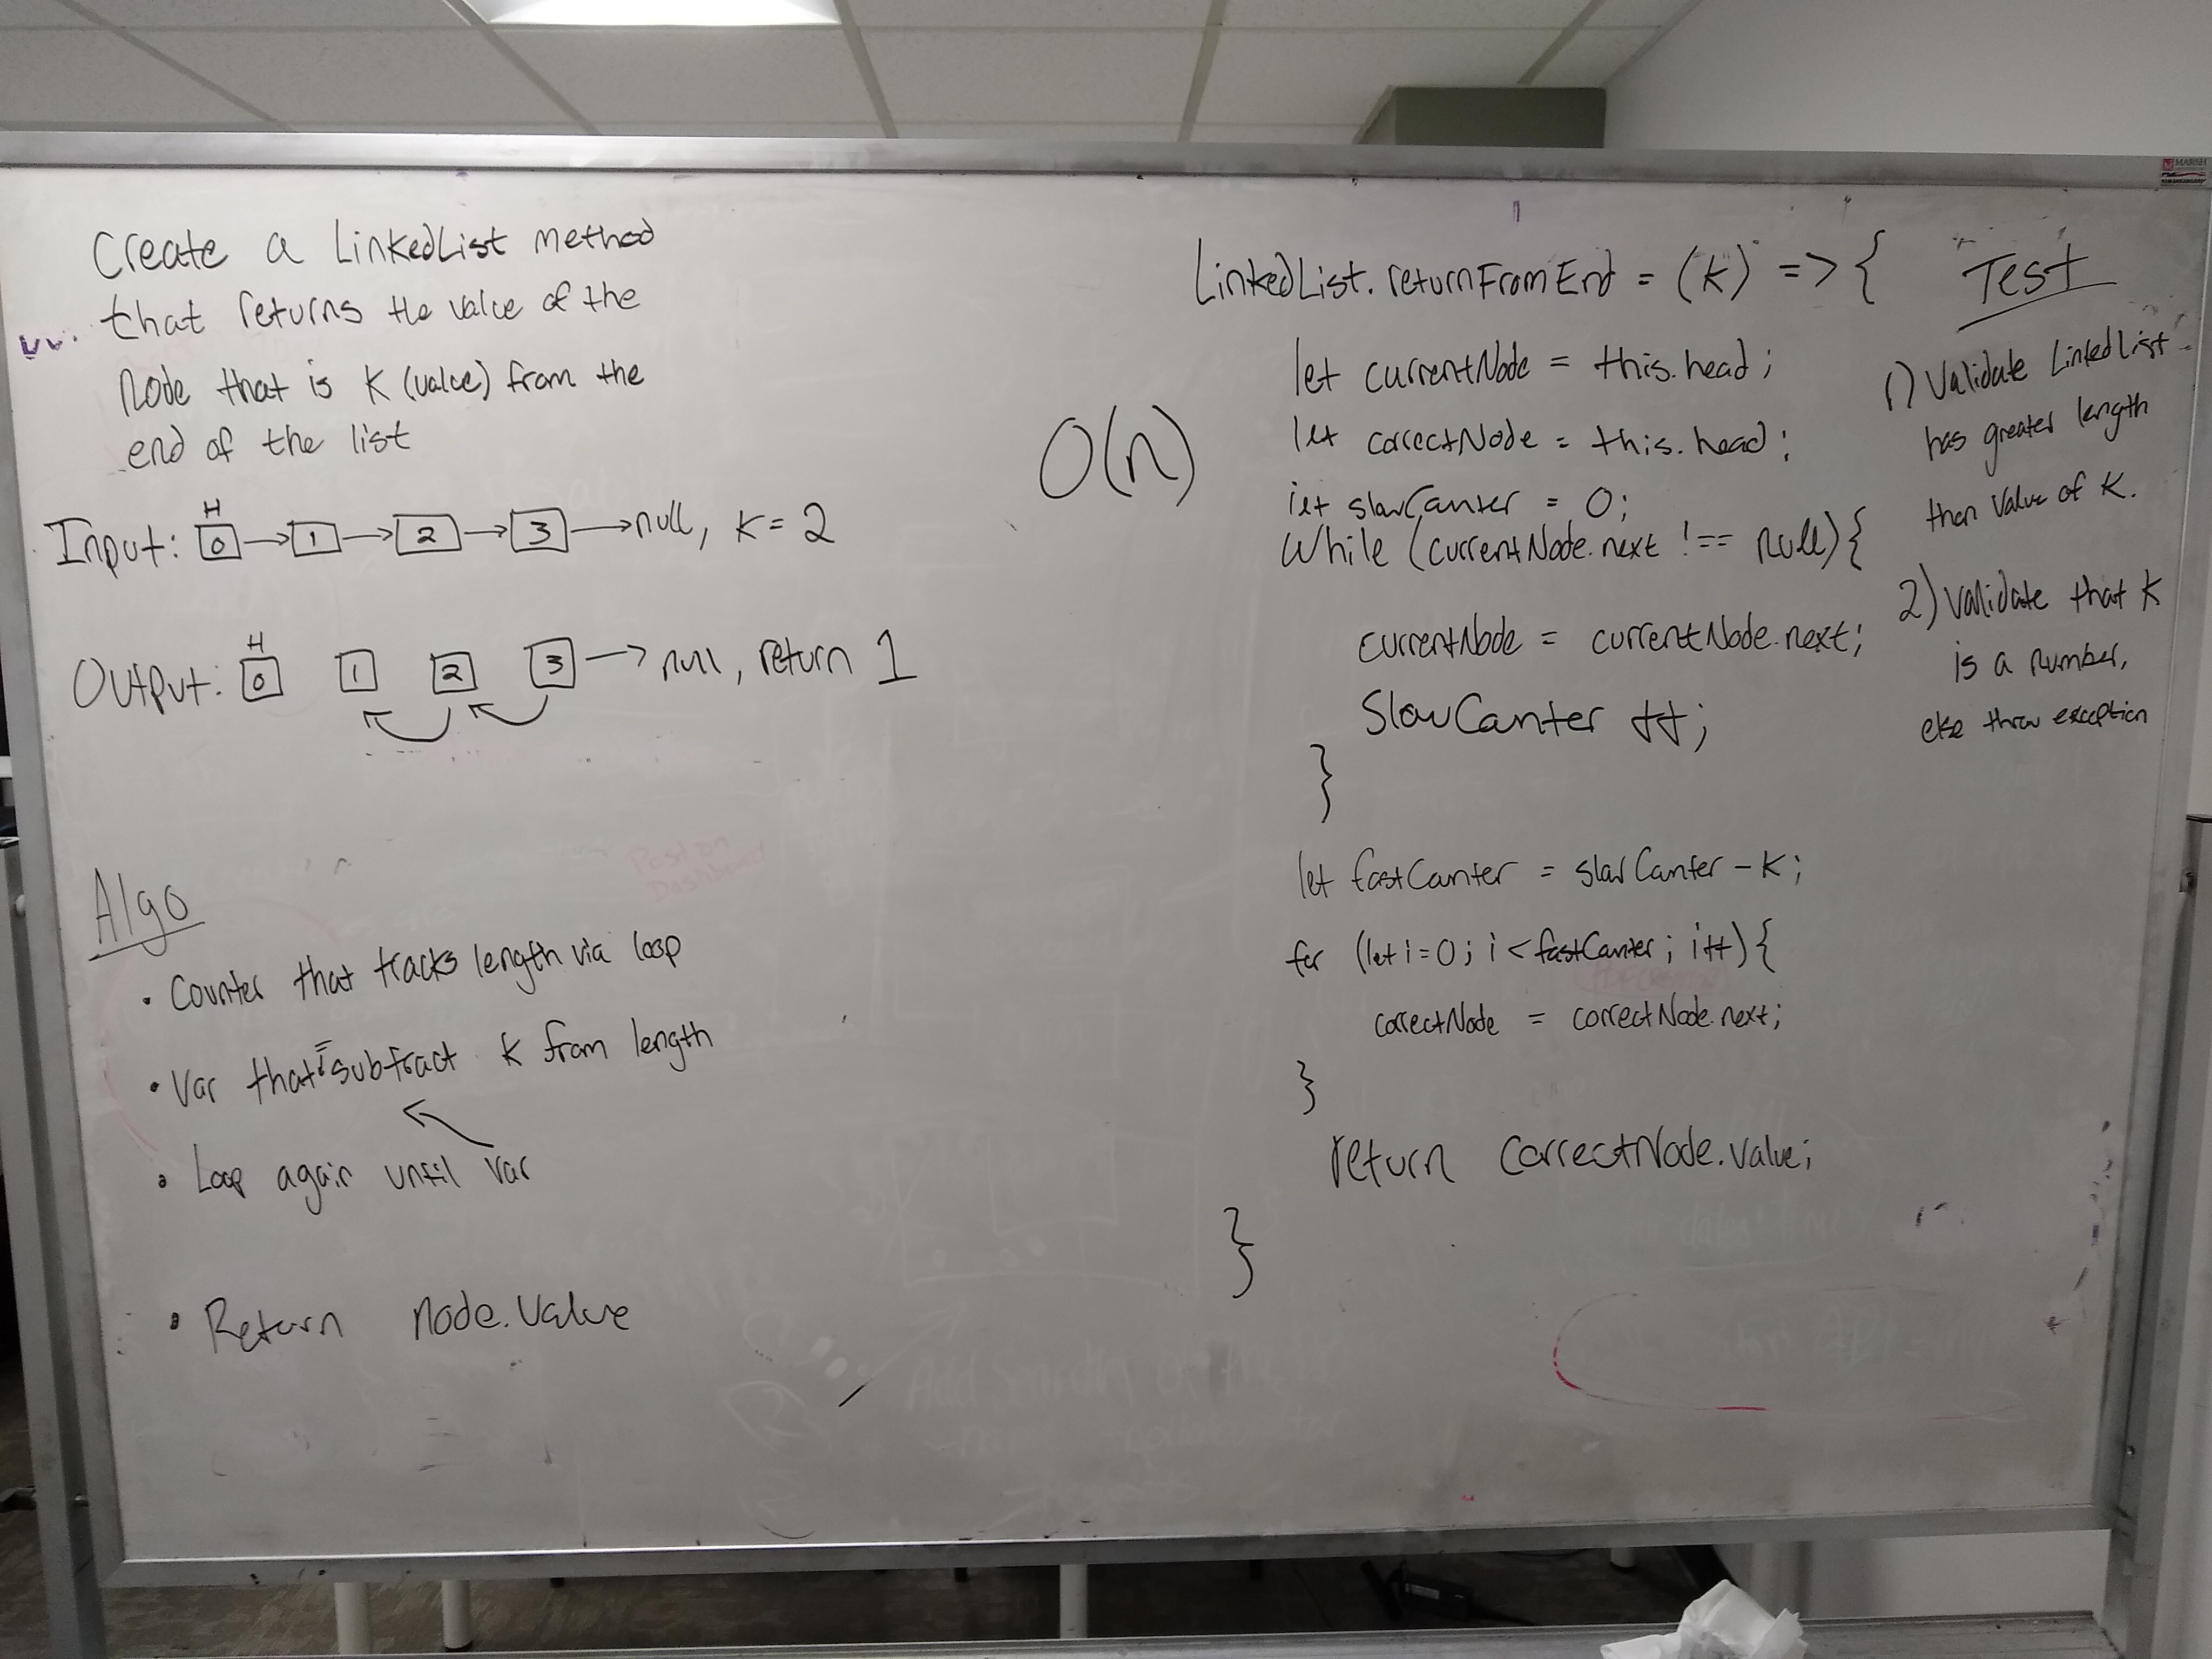 Create a LinkedList method
that returns the value of the
Node that is K (value) from the
end of the list
Input: H 0 → 1 → 2 → 3 → null, K = 2
Output: H 0 1 2 3 → null, return 1
Algo
• Counter that tracks length via loop
• Var that subtract K from length
• Loop again until var
• Return node.value
O(n)
LinkedList.returnFromEnd = (K) => {
let currentNode = this.head;
let correctNode = this.head;
let slowCanter = 0;
While (currentNode.next !== null) {
currentNode = currentNode.next;
SlowCanter ++;
}
let fastCanter = slowCanter - K;
for (let i=0; i < fastCanter; i++) {
correctNode = correctNode.next;
}
return correctNode.value;
}
Test
1) Validate LinkedList
has greater length
then value of K.
2) Validate that K
is a number,
else throw exception
Post on
Dashboard
MARSH